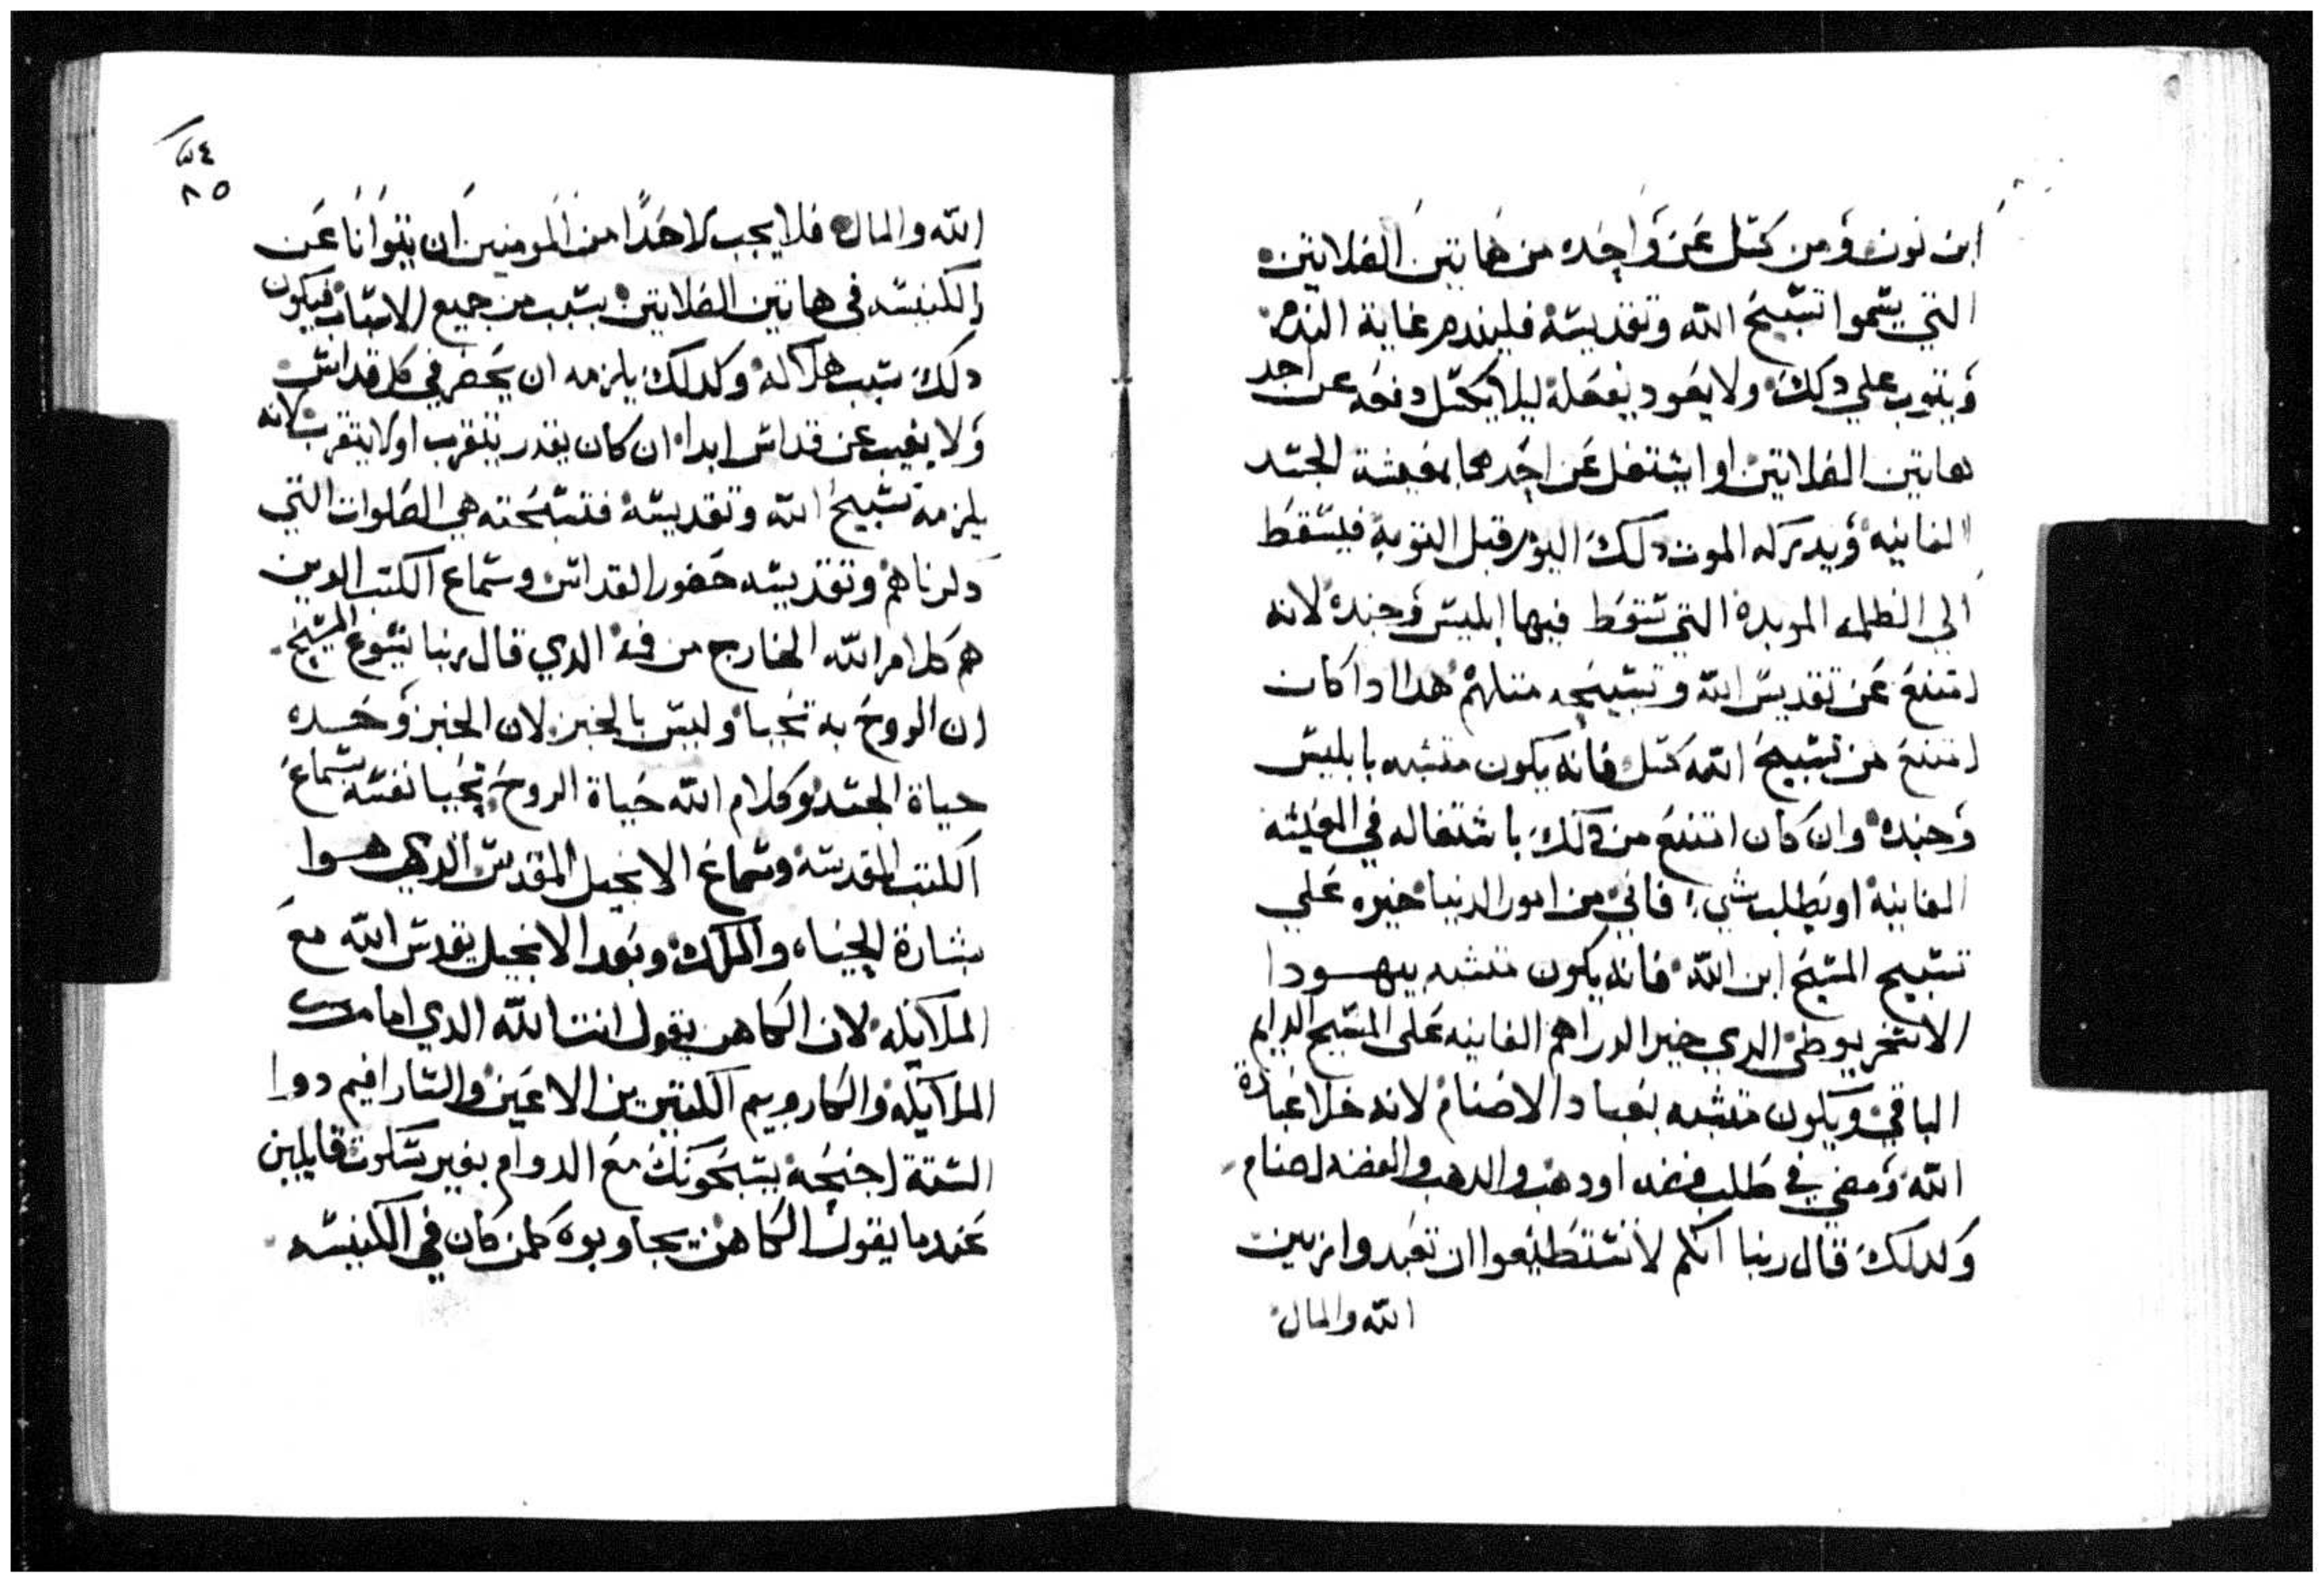 ابن نون ومن كسل عن واحده من هاتين الصلاتين
التي يتموا تسبيح الله وتقديسه فليندم غاية الندم
ويتوب علي دلك ولا يعود يفعله ليلا يكسل دفعه عن احد
هاتين الصلاتين او ايشتغل عن احدهما بمعيشة الجسد
الفانيه ويدركه الموت دلك اليوم قبل التوبه فيسقط
الي الظلمه الموبده التي سقط فيها ابليس وجنده لانه
امتنع عن تقديس الله وتسبيحه متلهم هدا ادا كان
امتنع من تسبيح الله كسل فانه يكون متشبه بابليس
وجنده وان كان امتنع من دلك باشتغاله في المعيشه
الفانيه او بطلب شيء فاني من امور الدنيا خيره علي
تسبيح المسيح ابن الله فانه يكون متشبه بيهودا
الاسخريوطي الدي خير الدراهم الفانيه على المسيح الدايم
الباقي ويكون متشبه بعباد الاصنام لانه خلا عبادة
الله ومضي في طلب فضه او دهب والدهب والفضه اصنام
ولدلك قال ربنا انكم لا تستطيعوا ان تعبدوا ربين
الله والمال
٥٤
٨٥
الله والمال فلا يجب لاحدا من المومنين ان يتوانا عن
الكنيسه في هاتين الصلاتين بسبب من جميع الاسباب فيكون
دلك سبب هلاكه وكدلك يلزمه ان يحضر في كل قداس
ولا يغيب عن قداس ابدا ان كان يقدر يتقرب او لا يتقرب لانه
يلزمه تسبيح الله وتقديسه فتسبحته هي الصلوات التي
دكرناهم وتقديسه حضور القداس وسماع الكتب الدين
هم كلام الله الخارج من فه الدي قال ربنا يسوع المسيح
ان الروح به تحيا وليس بالخبز لان الخبز وحده
حياة الجسد وكلام الله حياة الروح تحيا نفسه بسماع
الكتب المقدسه وسماع الانجيل المقدس الدي هوا
بشارة الحياه والملك وبعد الانجيل يقدس الله مع
الملايكه لان الكاهن يقول انت الله الدي امامك
الملايكه والكاروبيم الكتيرين الاعين والسارافيم دوا
الستة اجنحه يسبحونك مع الدوام بغير سكوت قايلين
عندما يقول الكاهن يجاوبوه كلمن كان في الكنيسه